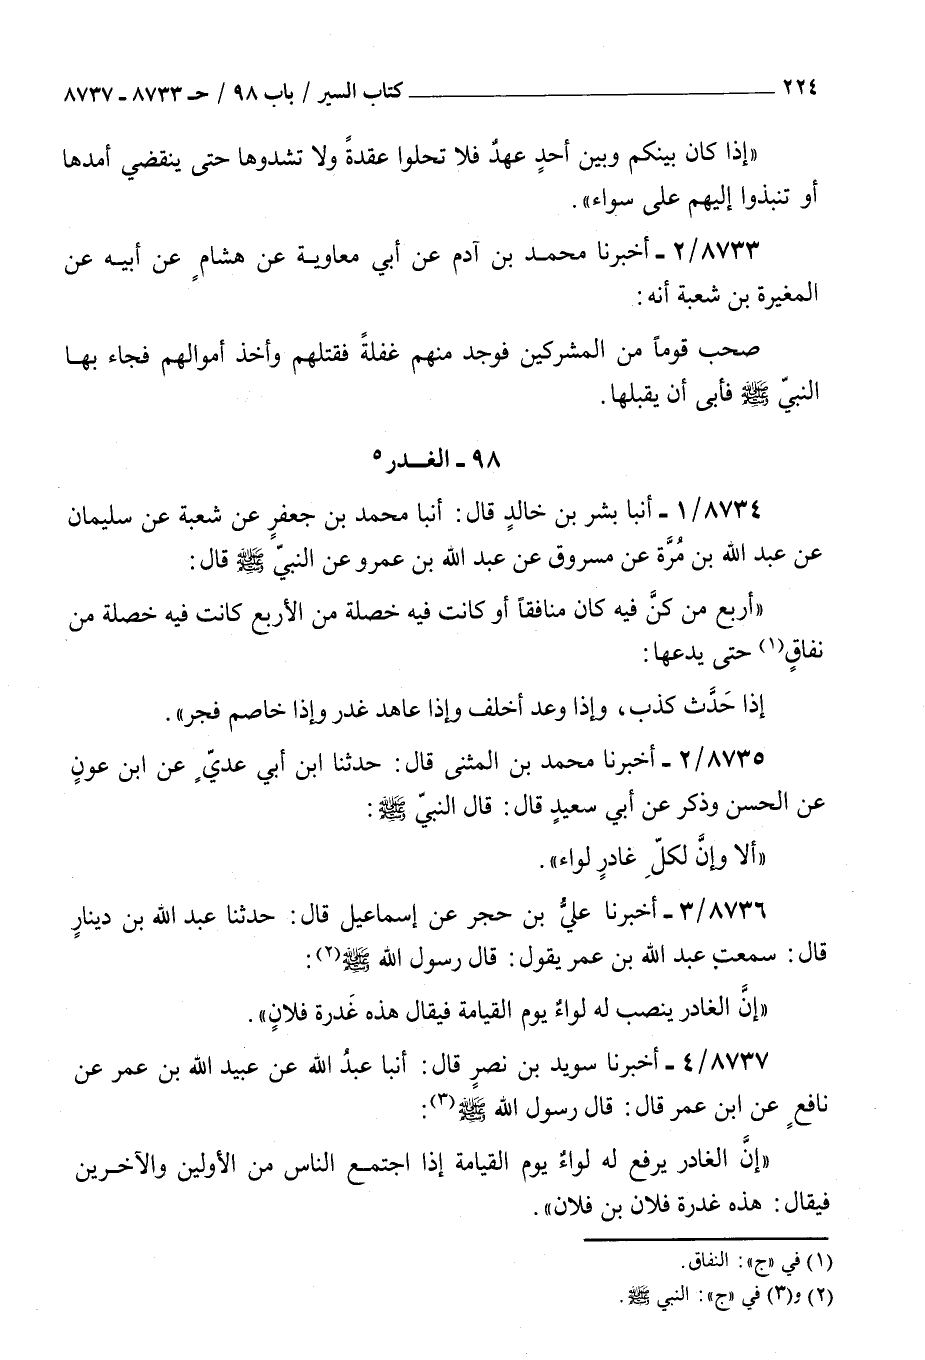 ٢٢٤ ـــــــــــــــــــــــــ كتاب السير / باب ٩٨ / حـ ٨٧٣٣ ـ ٨٧٣٧
«إذا كان بينكم وبين أحدٍ عهدٌ فلا تحلوا عقدةً ولا تشدوها حتى ينقضي أمدها
أو تنبذوا إليهم على سواء».
٢/٨٧٣٣ ـ أخبرنا محمد بن آدم عن أبي معاوية عن هشامٍ عن أبيه عن
المغيرة بن شعبة أنه:
صحب قوماً من المشركين فوجد منهم غفلةً فقتلهم وأخذ أموالهم فجاء بها
النبيّ ﷺ فأبى أن يقبلها.
٩٨ ـ الغدر ٥
١/٨٧٣٤ ـ أنبا بشر بن خالدٍ قال: أنبا محمد بن جعفرٍ عن شعبة عن سليمان
عن عبد الله بن مُرَّة عن مسروق عن عبد الله بن عمرو عن النبيّ ﷺ قال:
«أربع من كنَّ فيه كان منافقاً أو كانت فيه خصلة من الأربع كانت فيه خصلة من
نفاقٍ(١) حتى يدعها:
إذا حَدَّث كذب، وإذا وعد أخلف وإذا عاهد غدر وإذا خاصم فجر».
٢/٨٧٣٥ ـ أخبرنا محمد بن المثنى قال: حدثنا ابن أبي عديٍّ عن ابن عونٍ
عن الحسن وذكر عن أبي سعيدٍ قال: قال النبيّ ﷺ:
«ألا وإنَّ لكلِّ غادرٍ لواء».
٣/٨٧٣٦ ـ أخبرنا عليُّ بن حجر عن إسماعيل قال: حدثنا عبد الله بن دينارٍ
قال: سمعت عبد الله بن عمر يقول: قال رسول الله ﷺ(٢):
«إنَّ الغادر ينصب له لواءٌ يوم القيامة فيقال هذه غَدرة فلانٍ».
٤/٨٧٣٧ ـ أخبرنا سويد بن نصرٍ قال: أنبا عبدُ الله عن عبيد الله بن عمر عن
نافعٍ عن ابن عمر قال: قال رسول الله ﷺ(٣):
«إنَّ الغادر يرفع له لواءٌ يوم القيامة إذا اجتمع الناس من الأولين والآخرين
فيقال: هذه غدرة فلان بن فلان».
(١) في «ج»: النفاق.
(٢) و(٣) في «ج»: النبي ﷺ.